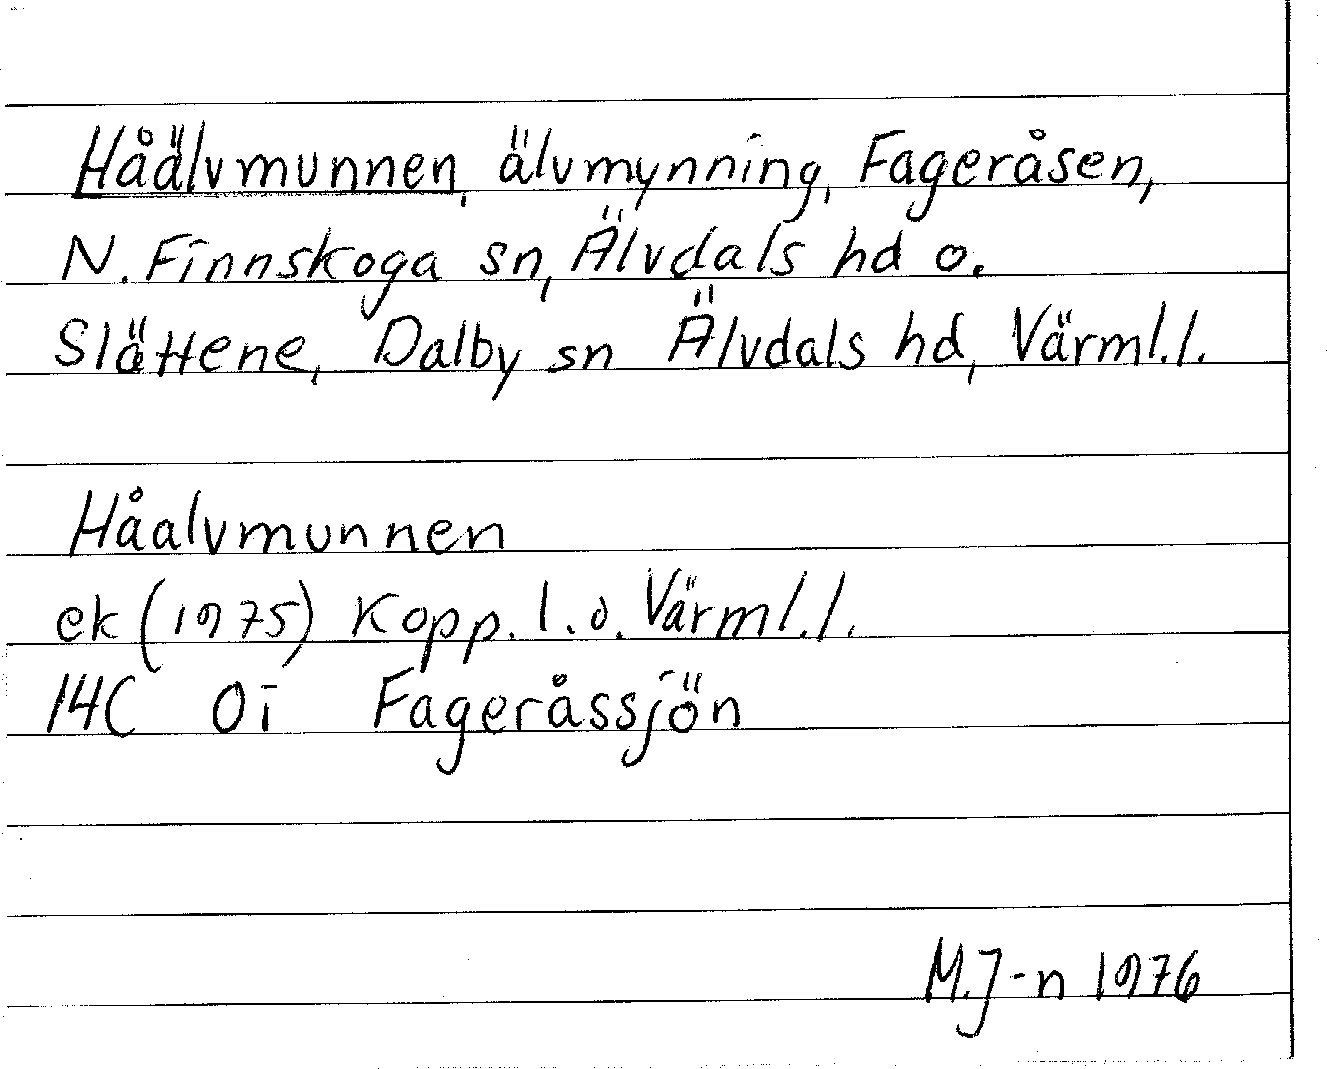 Håälvmunnen, älvmynning, Fageråsen,
N. Finnskoga sn, Älvdals hd o.
Slättene, Dalby sn Älvdals hd, Värml.l.
Håalvmunnen
ek (1975) Kopp. l. o. Värml.l.
14C 0i Fageråssjön
M.J-n 1976